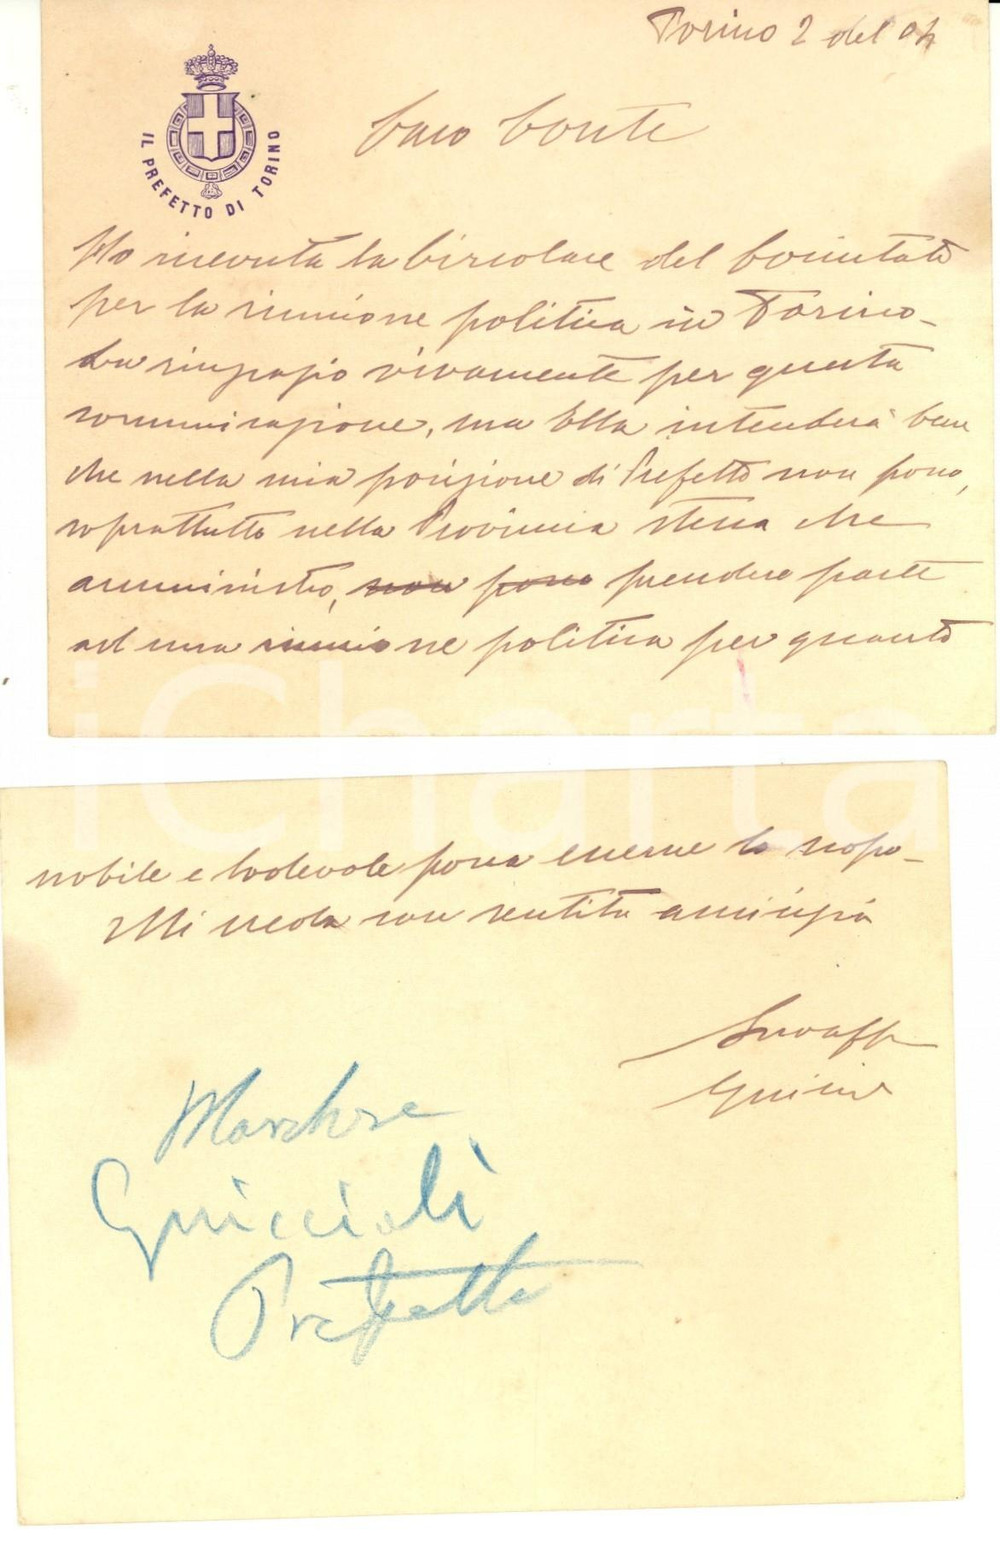 Torino 2 del 04
IL PREFETTO DI TORINO
Caro Conte
Ho ricevuta la Circolare del Comitato
per la riunione politica in Torino-
La ringrazio vivamente per questa
comunicazione, ma Ella intenderà bene
che nella mia posizione di Prefetto non posso,
soprattutto nella Provincia stessa che
amministro, non posso prendere parte
ad una riunione politica per quanto
nobile e lodevole possa esserne lo scopo-
Mi creda con sentita amicizia
Guiccioli
Marchese
Guiccioli
Prefetto
iCharta